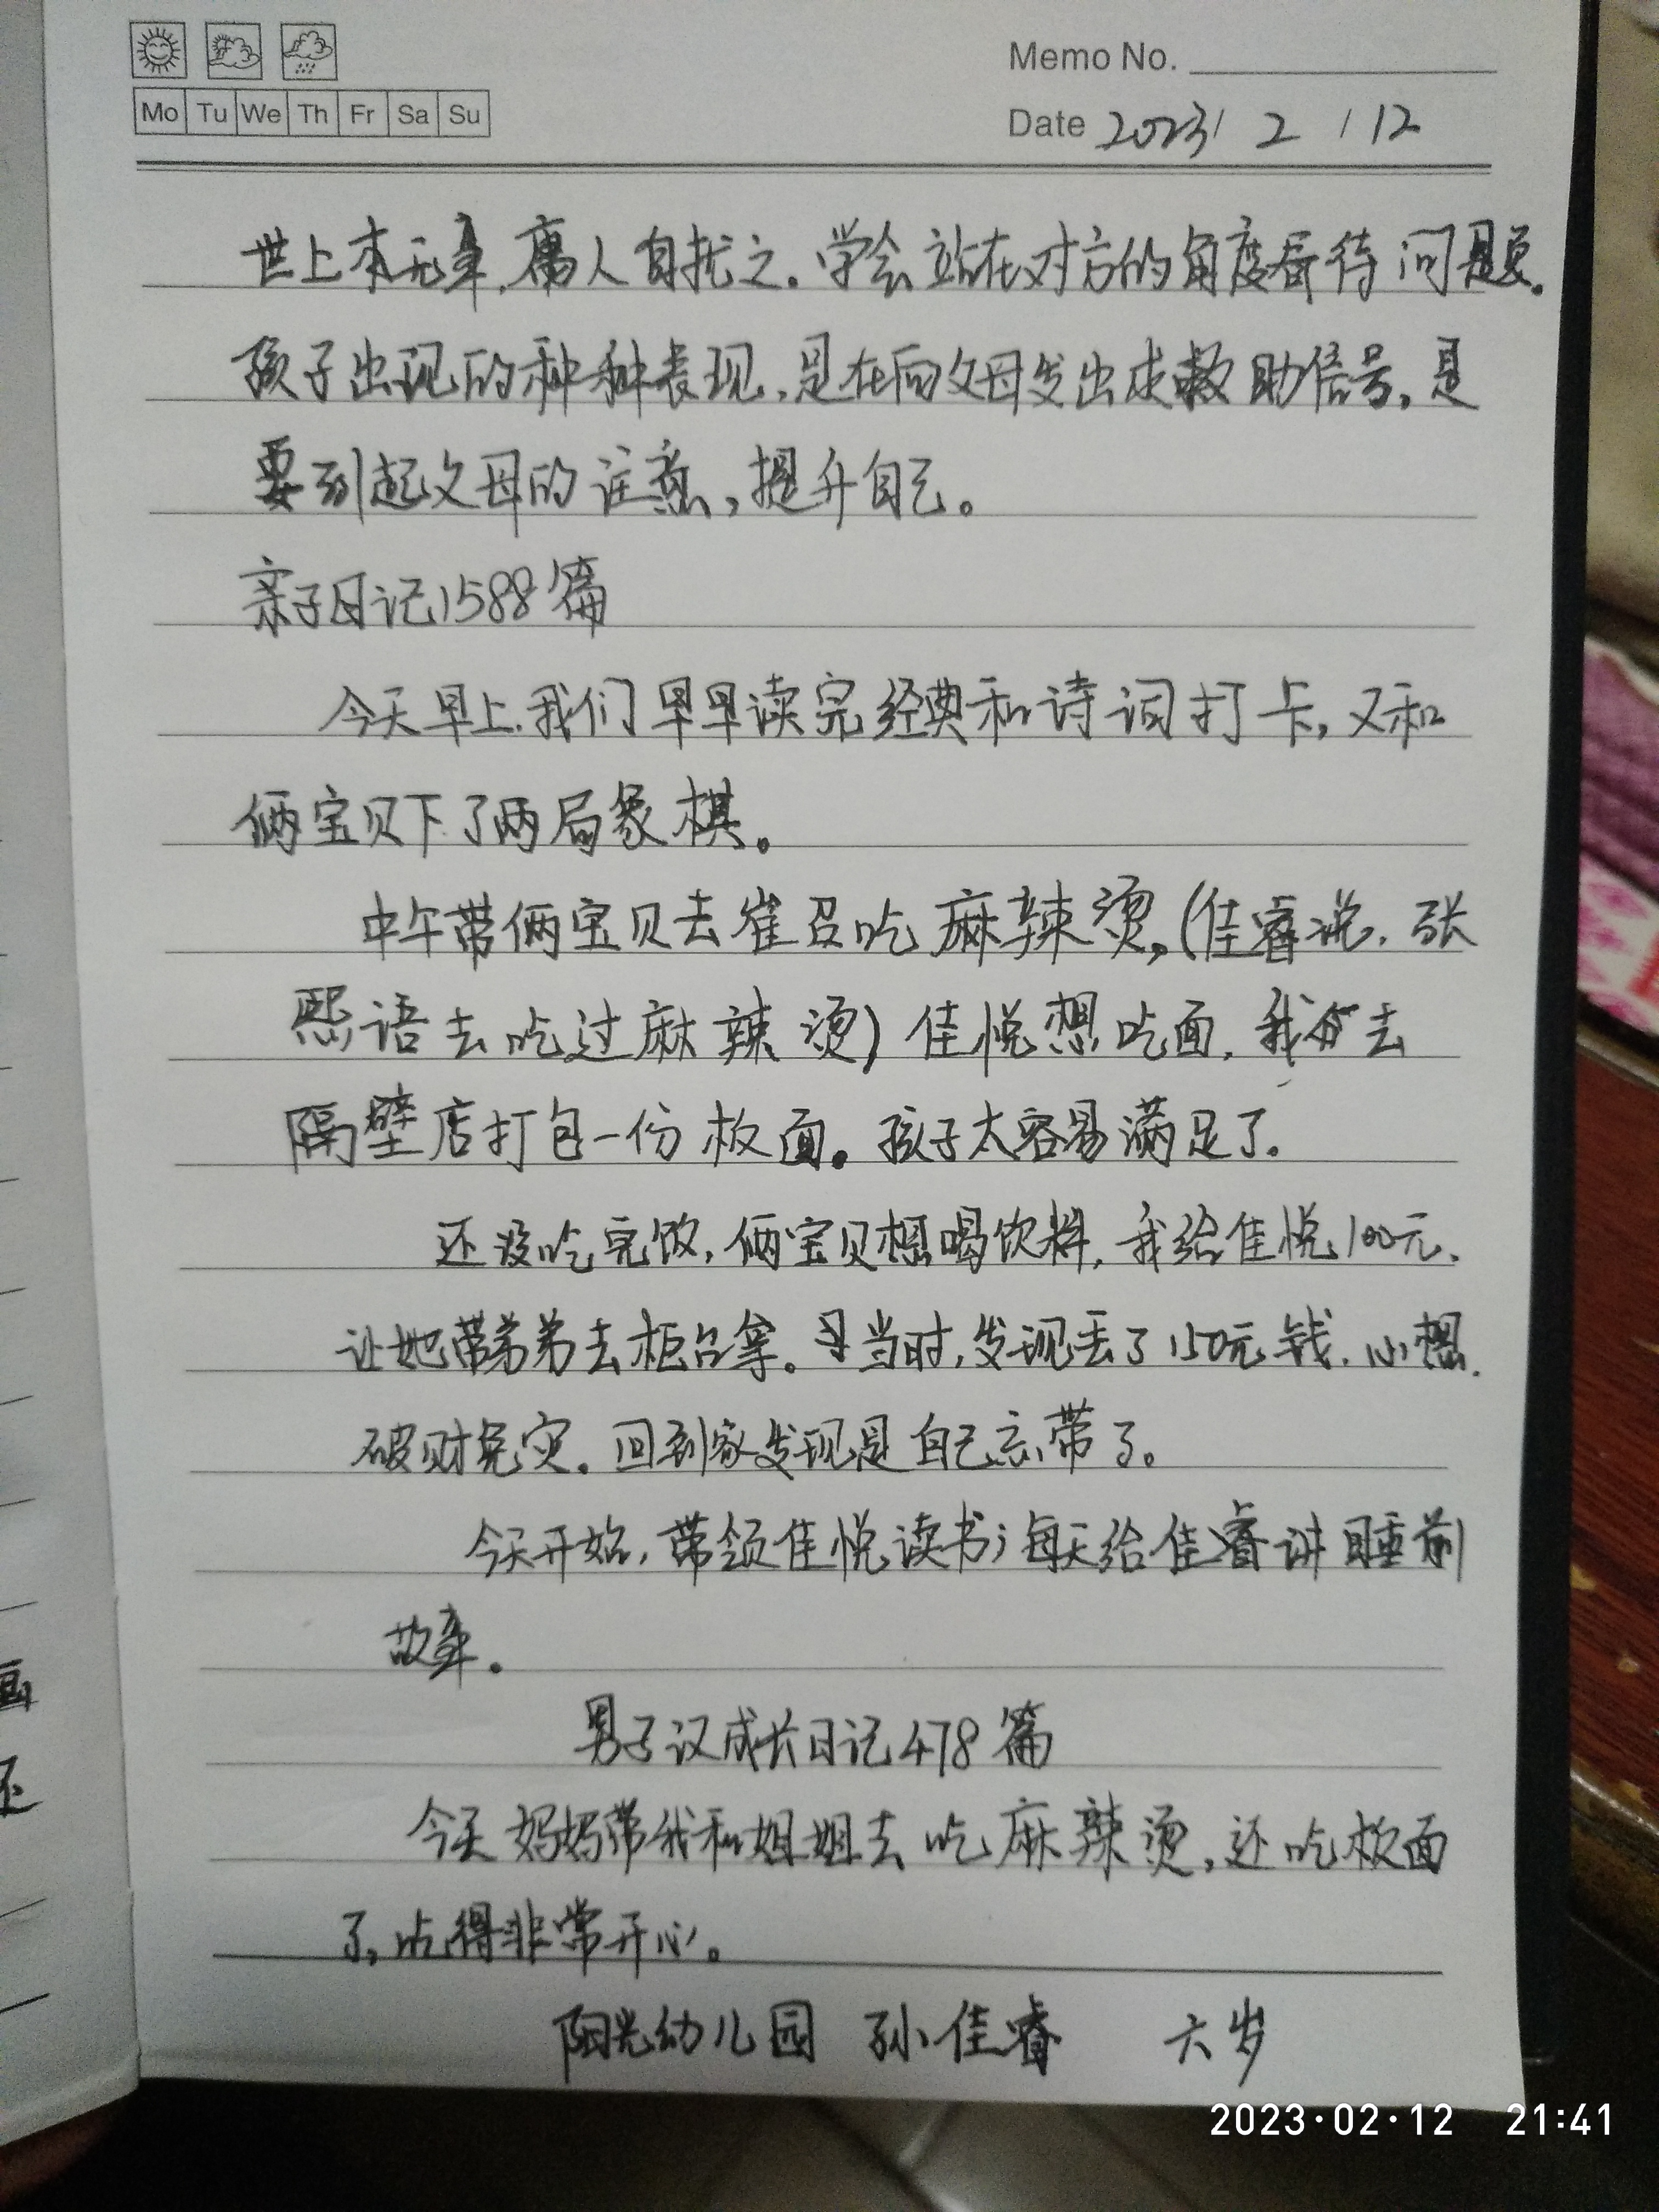 Memo No.
Mo Tu We Th Fr Sa Su
Date 2023/ 2 / 12
世上本无事,庸人自扰之。学会站在对方的角度看待问题。
孩子出现的种种表现,是在向父母发出求救助信号,是
要引起父母的注意,提升自己。
亲子日记1588篇
今天早上,我们早早读完经典和诗词打卡,又和
俩宝贝下了两局象棋。
中午带俩宝贝去崔召吃麻辣烫,(佳睿说,张
熙语去吃过麻辣烫)佳悦想吃面,我去
隔壁店打包一份板面。孩子太容易满足了。
还没吃完饭,俩宝贝想喝饮料,我给佳悦100元,
让她带弟弟去柜台拿。当时,发现丢了150元钱,心想,
破财免灾。回到家发现是自己忘带了。
今天开始,带领佳悦读书;每天给佳睿讲睡前
故事。
男子汉成长日记478篇
今天妈妈带我和姐姐去吃麻辣烫,还吃板面
了,吃得非常开心。
阳光幼儿园 孙佳睿 六岁
2023·02·12 21:41